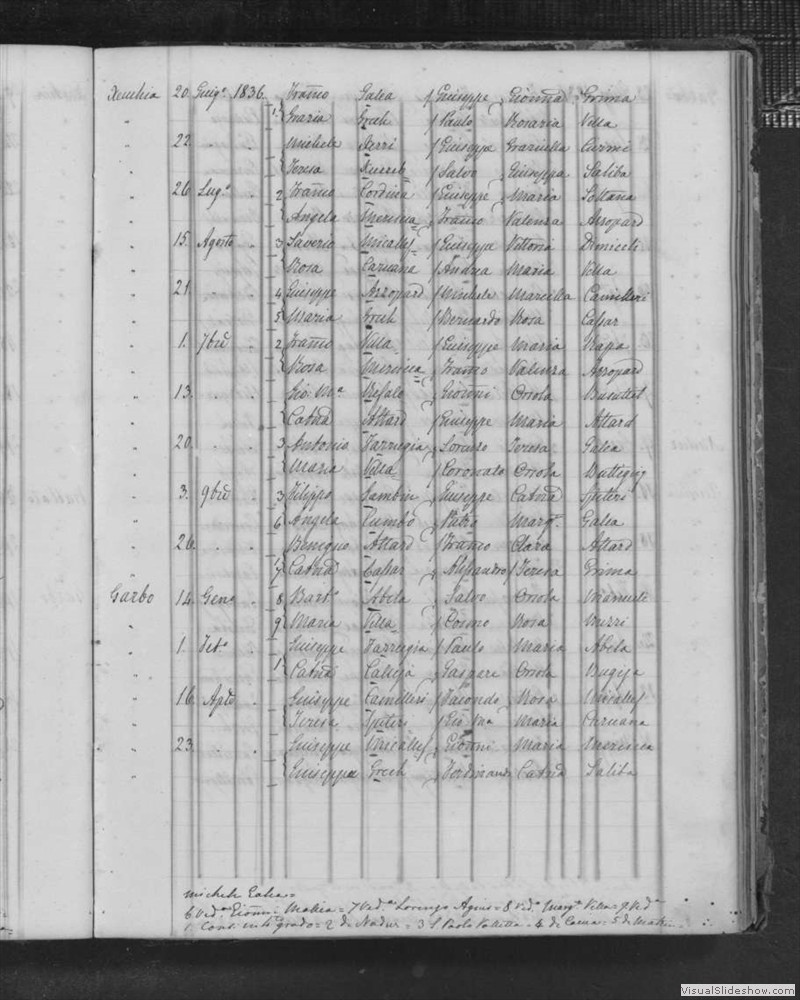 Xeuchia 20. Giug.o 1836. Franco Galea / Giuseppe Gionna Grima
1 Grazia Grech / Paulo Rosaria Vella
22. Michele Azzri / Giuseppe Graziulla Curmi
Teresa Xuereb / Salvo Giuseppa Saliba
26 Lug.o 2 Franco Cordina / Giuseppe Maria Soltana
Angela Mercieca / Franco Valenza Azzopard
15. Agosto 3 Saverio Micallef / Giuseppe Vittoria Dimicoli
Rosa Caruana / Andrea Maria Vella
21. 4 Giuseppe Azzopard / Michele Marcella Camilleri
5 Maria Grech / Bernardo Rosa Cassar
1. 7bre 2 Franco Vella / Giuseppe Maria Rapa
Rosa Mercieca / Franco Valenza Azzopard
13. Gio: Ma Refalo / Gionni Orsola Busuttil
Catna Attard / Giuseppe Maria Attard
20. 3 Antonio Farrugia / Lorenzo Teresa Galea
Maria Vella / Coronato Orsola Buttigig
3. 9bre 3 Filippo Tambin / Giuseppe Catna Spiteri
6 Angela Cumbo / Pietro Marga Galea
26. Benigno Attard / Franco Clara Attard
7 Catna Cassar / Alessandro Teresa Grima
Garbo 14. Geno 8 Barto Abela / Salvo Orsola
9 Maria Vella / Cosmo Rosa Mizzi
1. Feb.o Giuseppe Farrugia / Paulo Maria Abela
1 Catna Calleja / Gaspare Orsola Bugeja
16. Aple Giuseppe Camilleri / Facondo Rosa Micallef
Teresa Spiteri / Gio Ma Maria Caruana
23. Giuseppe Micallef / Gionni Maria Mercieca
Giuseppa Grech / Ferdinando Catna Saliba
Michele Galea =
6 Ved.a Gionni = 7 Ved.a Lorenzo Agius = 8 Ved.a Marga Vella = 9 Ved.a
1. Cons: in 4 grado = 2 di Nadur = 3 S. Paolo Valletta = 4 di
VisualSlideshow.com